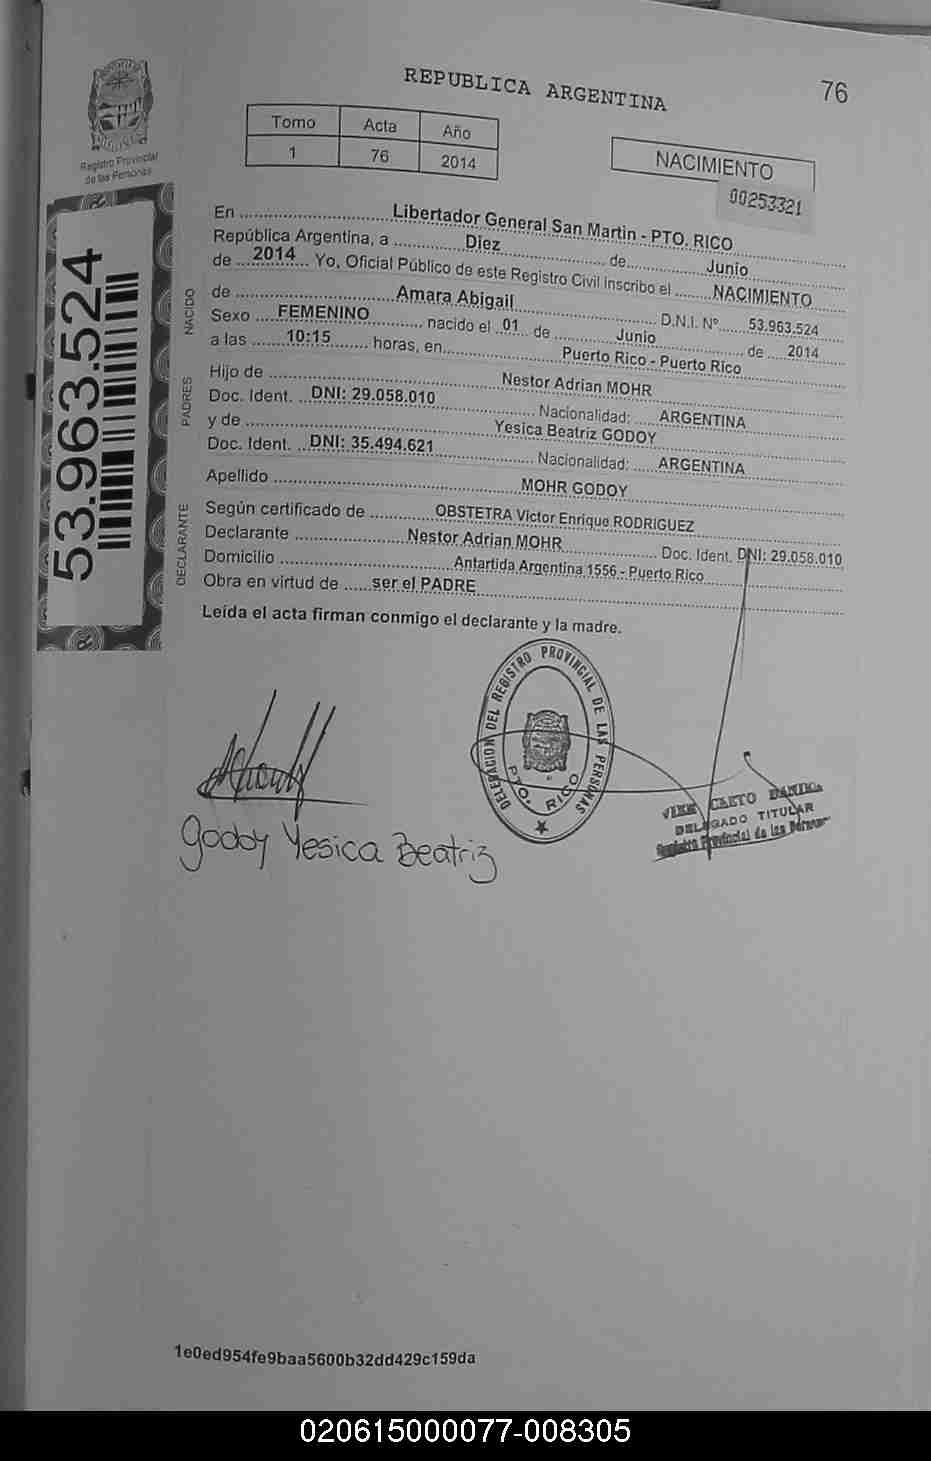 REPUBLICA ARGENTINA
76
Tomo Acta Año
1 76 2014
NACIMIENTO
00253321
Registro Provincial
de las Personas
53.963.524
NACIDO
PADRES
DECLARANTE
En Libertador General San Martin - PTO. RICO
República Argentina, a Diez de Junio
de 2014 Yo, Oficial Público de este Registro Civil inscribo el NACIMIENTO
de Amara Abigail D.N.I. Nº 53.963.524
Sexo FEMENINO nacido el 01 de Junio de 2014
a las 10:15 horas, en Puerto Rico - Puerto Rico
Hijo de Nestor Adrian MOHR
Doc. Ident. DNI: 29.058.010 Nacionalidad: ARGENTINA
y de Yesica Beatriz GODOY
Doc. Ident. DNI: 35.494.621 Nacionalidad: ARGENTINA
Apellido MOHR GODOY
Según certificado de OBSTETRA Victor Enrique RODRIGUEZ
Declarante Nestor Adrian MOHR Doc. Ident. DNI: 29.058.010
Domicilio Antartida Argentina 1556 - Puerto Rico
Obra en virtud de ser el PADRE
Leída el acta firman conmigo el declarante y la madre.
DELEGACION DEL REGISTRO PROVINCIAL DE LAS PERSONAS
PTO. RICO
DELEGADO TITULAR
Registro Provincial de las Personas
Godoy Yesica Beatriz
1e0ed954fe9baa5600b32dd429c159da
020615000077-008305